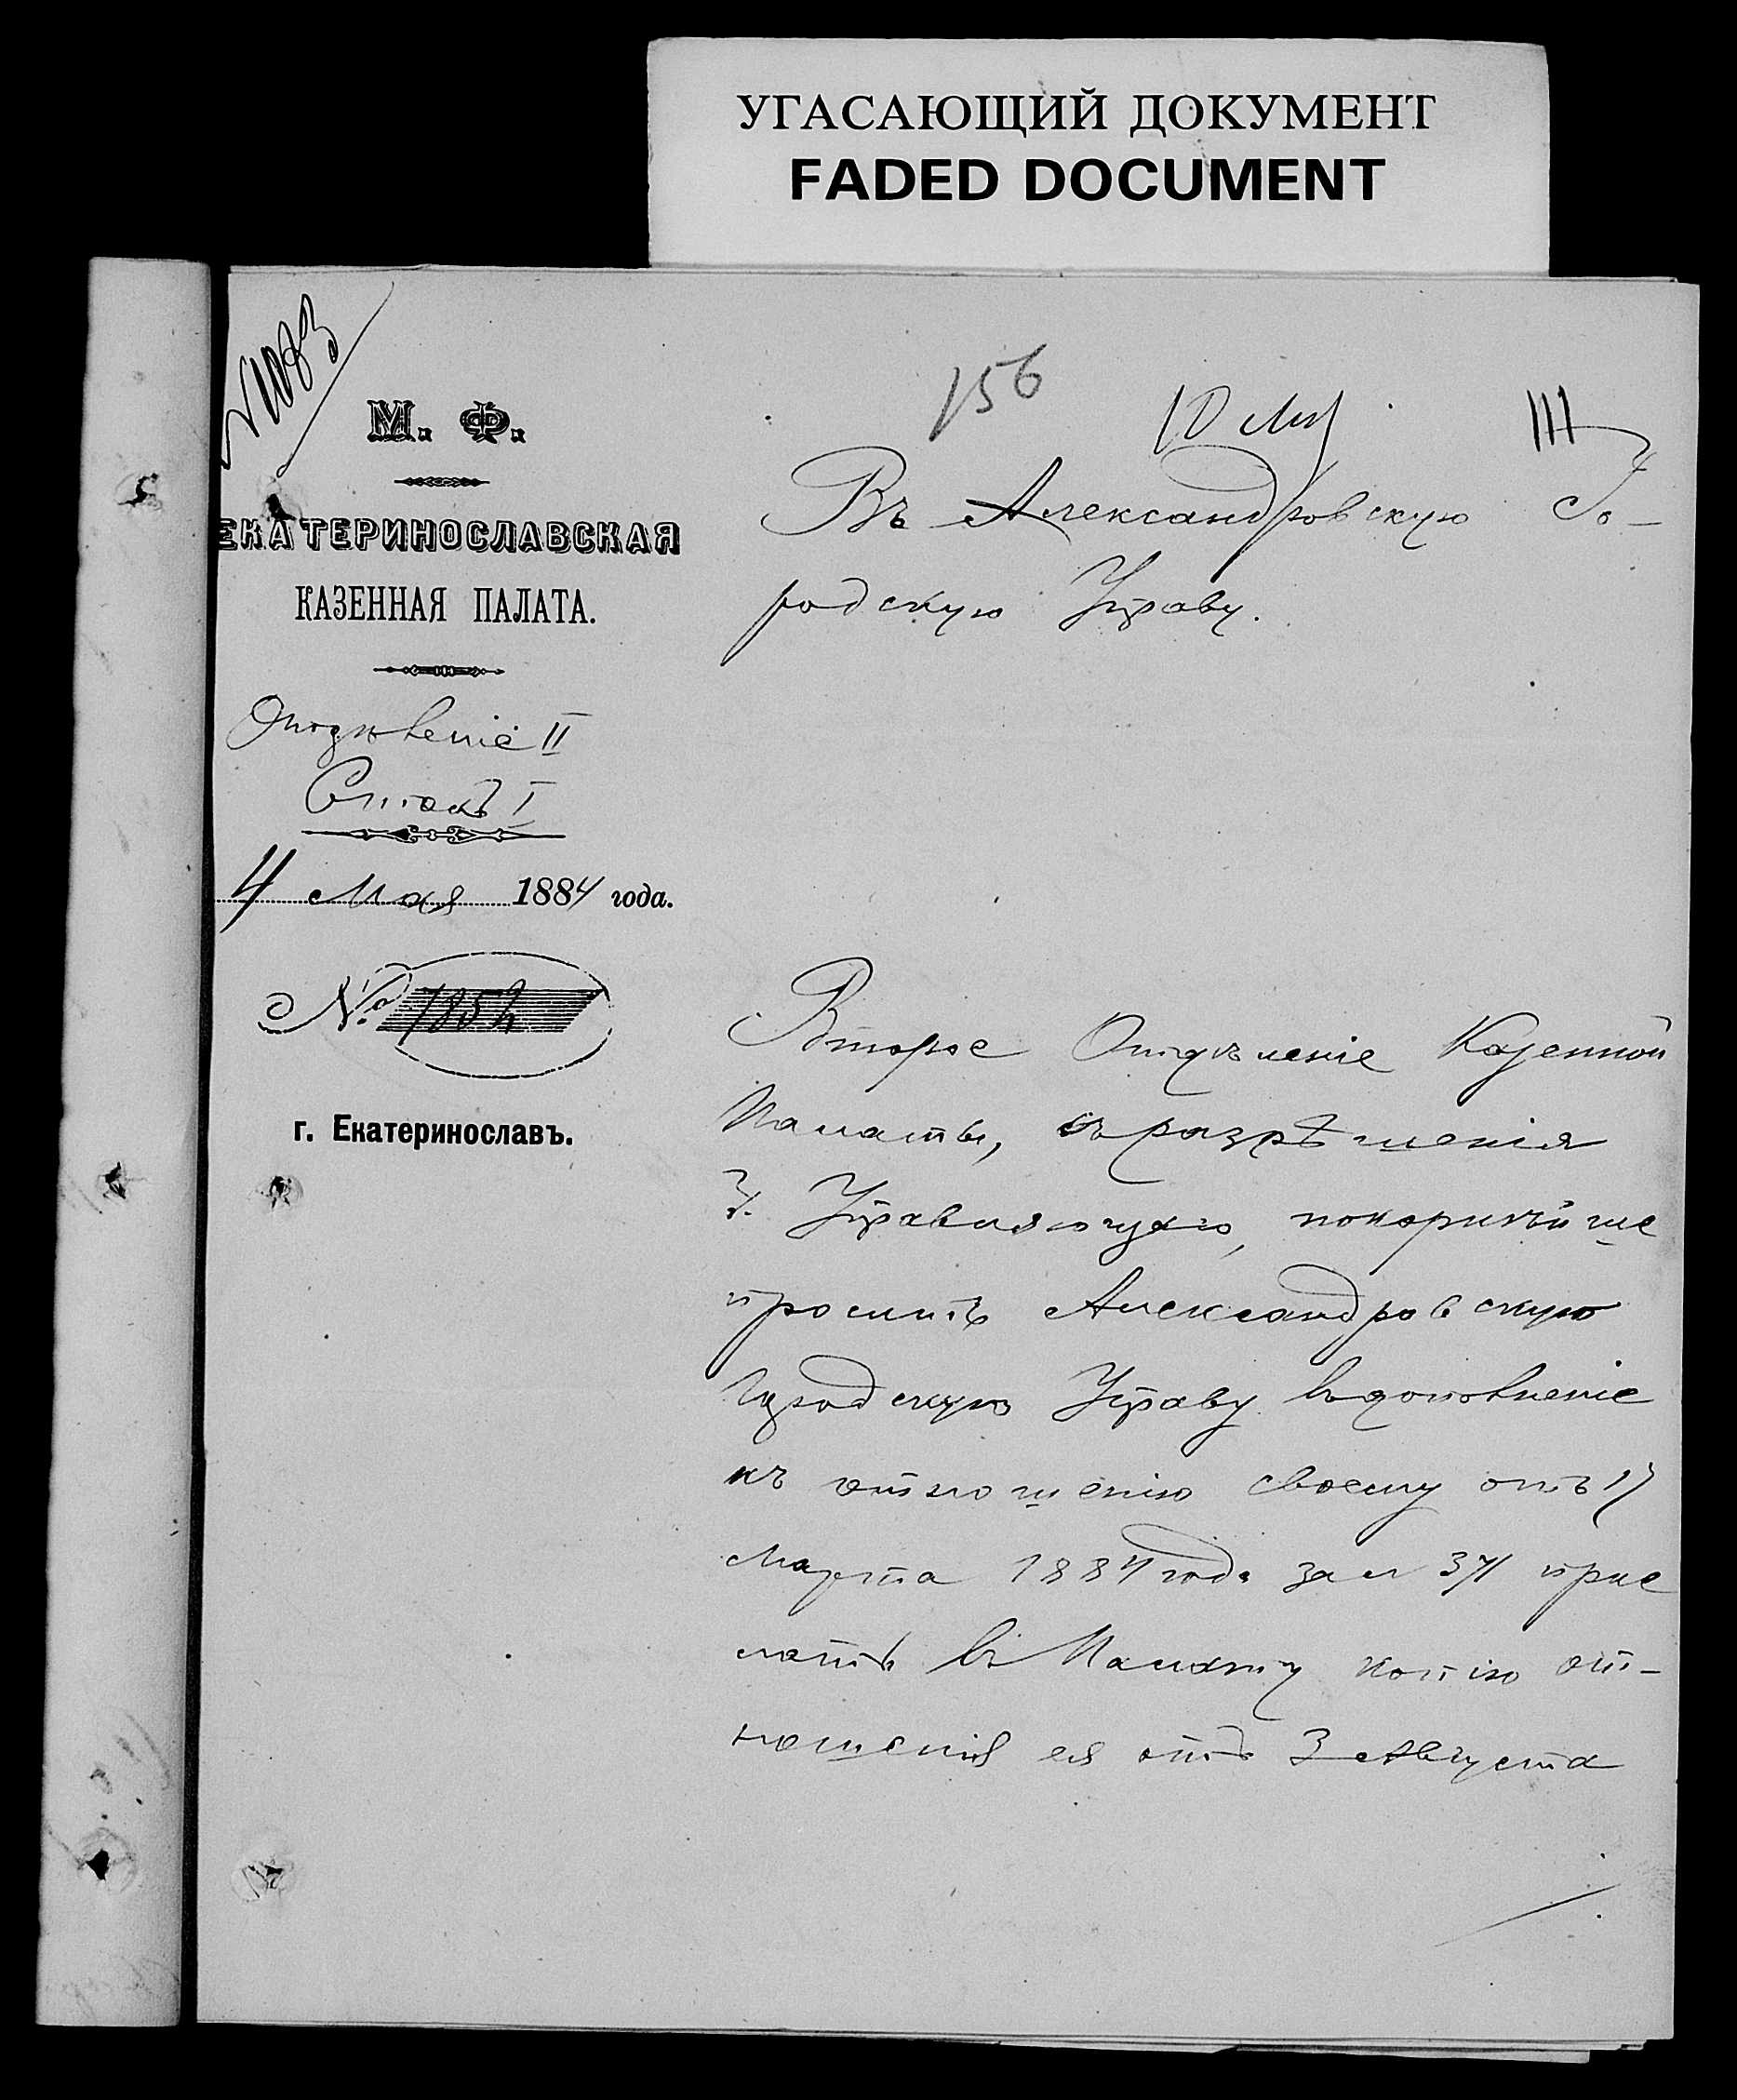 УГАСАЮЩИЙ ДОКУМЕНТ
FADED DOCUMENT
№1083
156
III
М. Ф.
ЕКАТЕРИНОСЛАВСКАЯ
КАЗЕННАЯ ПАЛАТА.
Отдѣленіе II
Столъ I
4 Мая 1884 года.
№ 7852
г. Екатеринославъ.
Въ Александровскую Го-
родскую Управу.
Второе Отдѣленіе Казенной
Палаты, съ разрѣшенія
Г. Управляющаго, покорнѣйше
проситъ Александровскую
Городскую Управу въ дополненіе
къ отношенію своему отъ 17
Марта 1884 года за № 371 прис
лать въ Палату копію от-
ношенія ея отъ 3 Августа